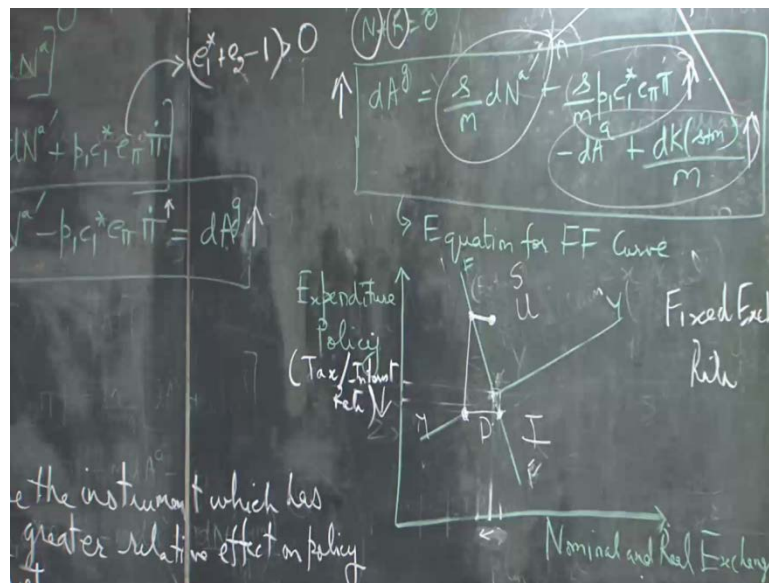 N^a]^0
(e₁* + e₂ - 1) > 0
dN^a' + p₁c₁*e_π π̇]
N^a' - p₁c₁*e_π π̇ ↑ = dA^g ↑
N + K = 0
↑ dA^g = s/m dN^a' - s/m p₁c₁*e_π π̇ ↑
- dA^g + dK(s+m)/m ↑
↳ Equation for FF Curve
Expenditure
Policy
(Tax/Interest
Rate) ↓
F
S
U
Y
Y
D
I
F
Fixed Exch
Nominal and Real Exchange
e the instrument which has
greater relative effect on policy